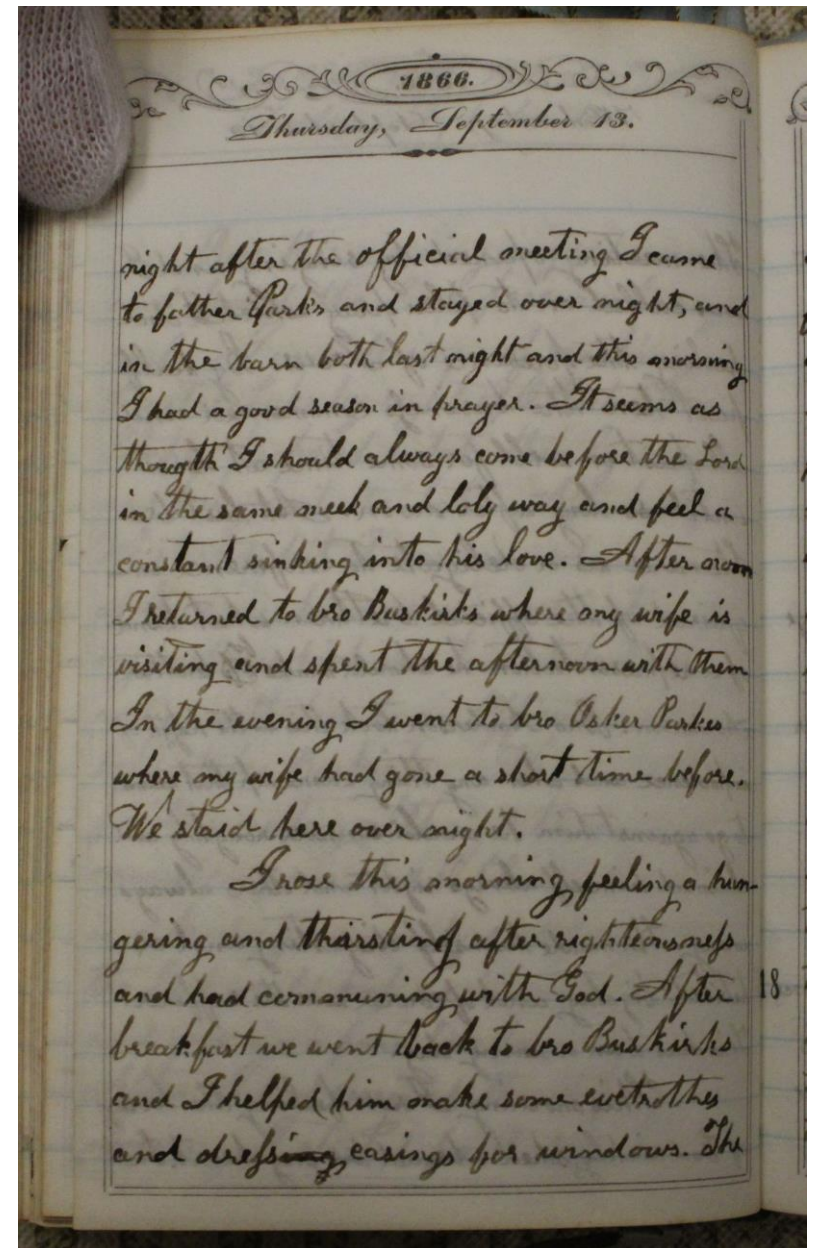 1866.
Thursday, September 13.
night after the official meeting I came
to father Parks and stayed over night, and
in the barn both last night and this morning
I had a good season in prayer. It seems as
thougth I should always come before the Lord
in the same meek and loly way and feel a
constant sinking into his love. After noon
I returned to bro Buskirks where my wife is
visiting and spent the afternoon with them
In the evening I went to bro Osker Parkes
where my wife had gone a short time before.
We staid here over night.
I rose this morning feeling a hun-
gering and thirsting after righteousness
and had communing with God. After
18
breakfast we went back to bro Buskirks
and I helped him make some
and dressing casings for windows. The